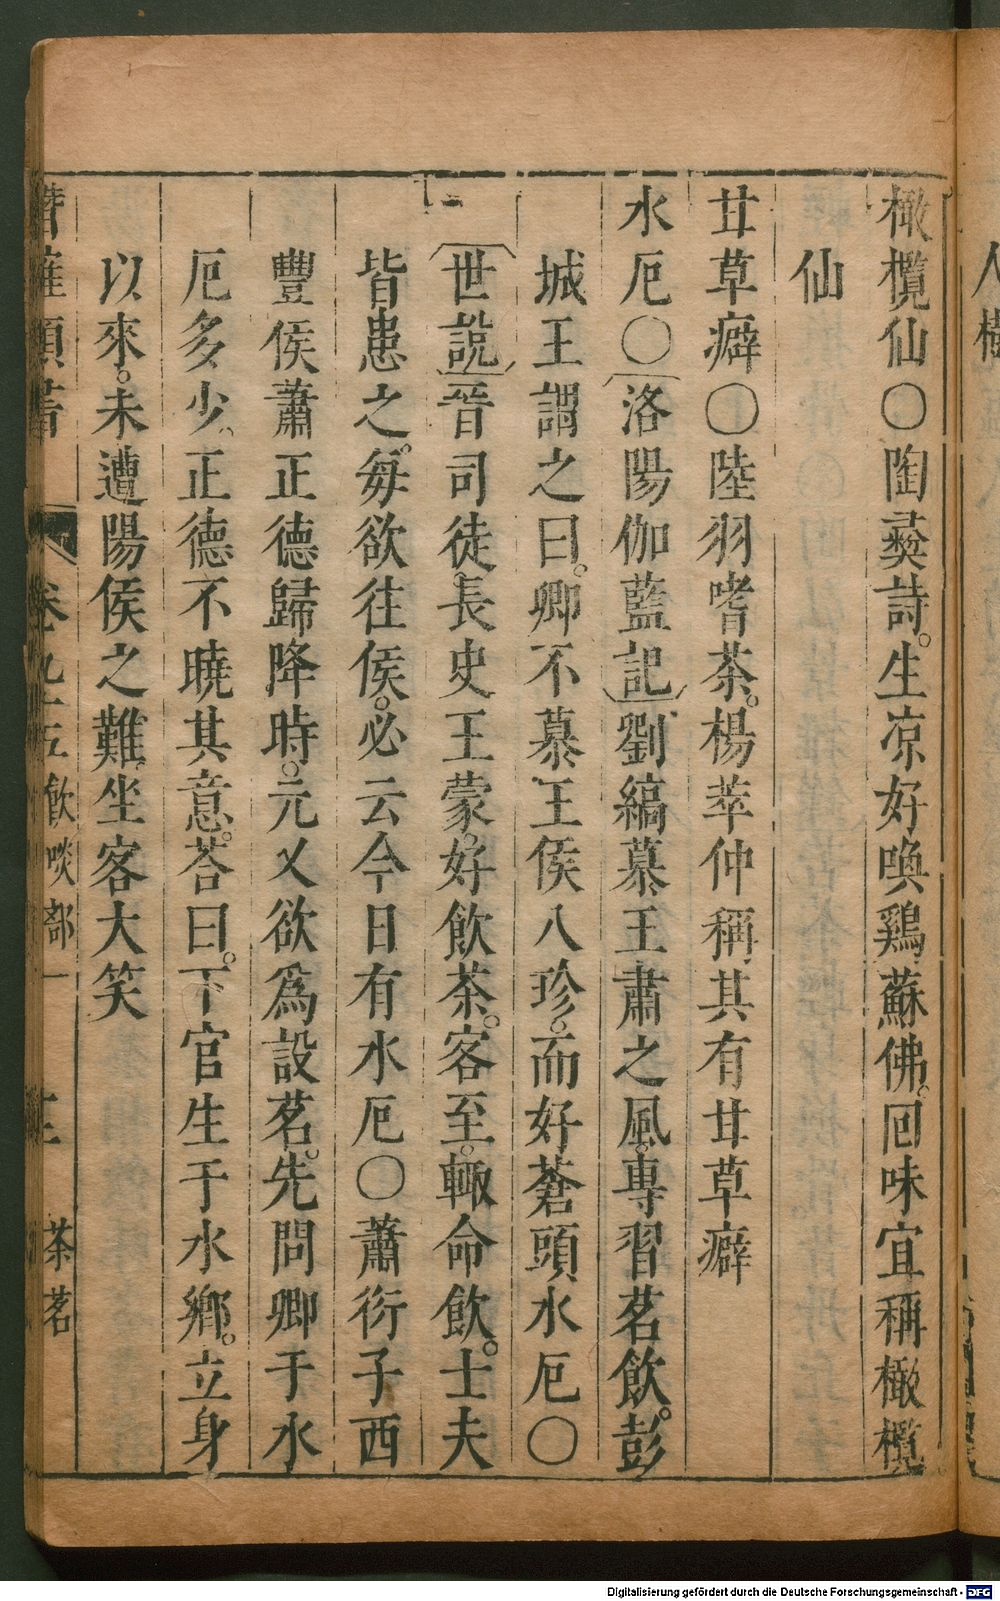 橄欖仙〇陶彞詩。生凉好喚鷄蘇佛。回味宜稱橄欖
仙
甘草癖〇陸羽嗜茶。楊萃仲稱其有甘草癖
水厄〇洛陽伽藍記劉縞慕王肅之風。專習茗飲。彭
城王謂之曰。卿不慕王侯八珍。而好蒼頭水厄〇
世說晉司徒長史王蒙。好飲茶。客至。輙命飲。士夫
皆患之。每欲往侯。必云今日有水厄〇蕭衍子西
豐侯蕭正德歸降時。元乂欲爲設茗。先問卿于水
厄多少。正德不曉其意。荅曰。下官生于水鄉。立身
以來。未遭陽侯之難。坐客大笑
卷九十五飲啖部一
茶茗。
Digitalisierung gefördert durch die Deutsche Forschungsgemeinschaft - DFG